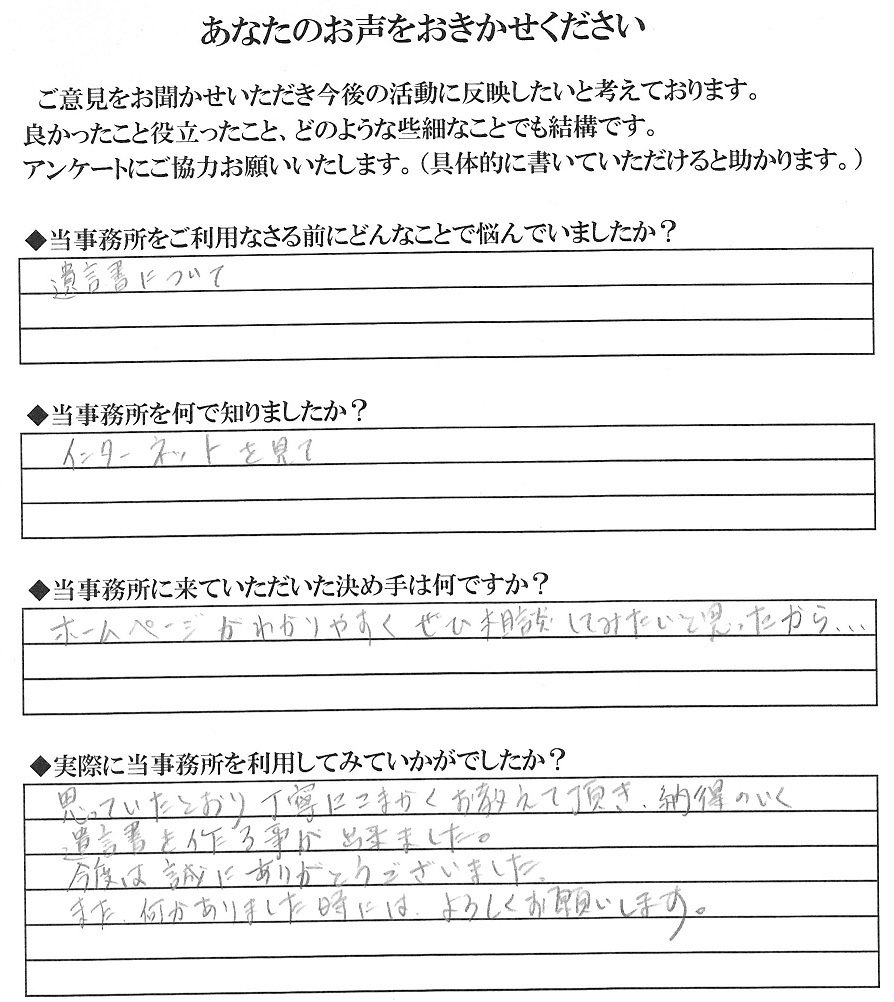 あなたのお声をおきかせください
ご意見をお聞かせいただき今後の活動に反映したいと考えております。
良かったこと役立ったこと、どのような些細なことでも結構です。
アンケートにご協力お願いいたします。（具体的に書いていただけると助かります。）
◆当事務所をご利用なさる前にどんなことで悩んでいましたか？
遺言書について
◆当事務所を何で知りましたか？
インターネットを見て
◆当事務所に来ていただいた決め手は何ですか？
ホームページがわかりやすく ぜひ相談してみたいと思ったから...
◆実際に当事務所を利用してみていかがでしたか？
思っていたとおり丁寧にこまかくお教えて頂き、納得のいく
遺言書を作る事が出来ました。
今度は誠にありがとうございました。
また、何かありました時には、よろしくお願いします。